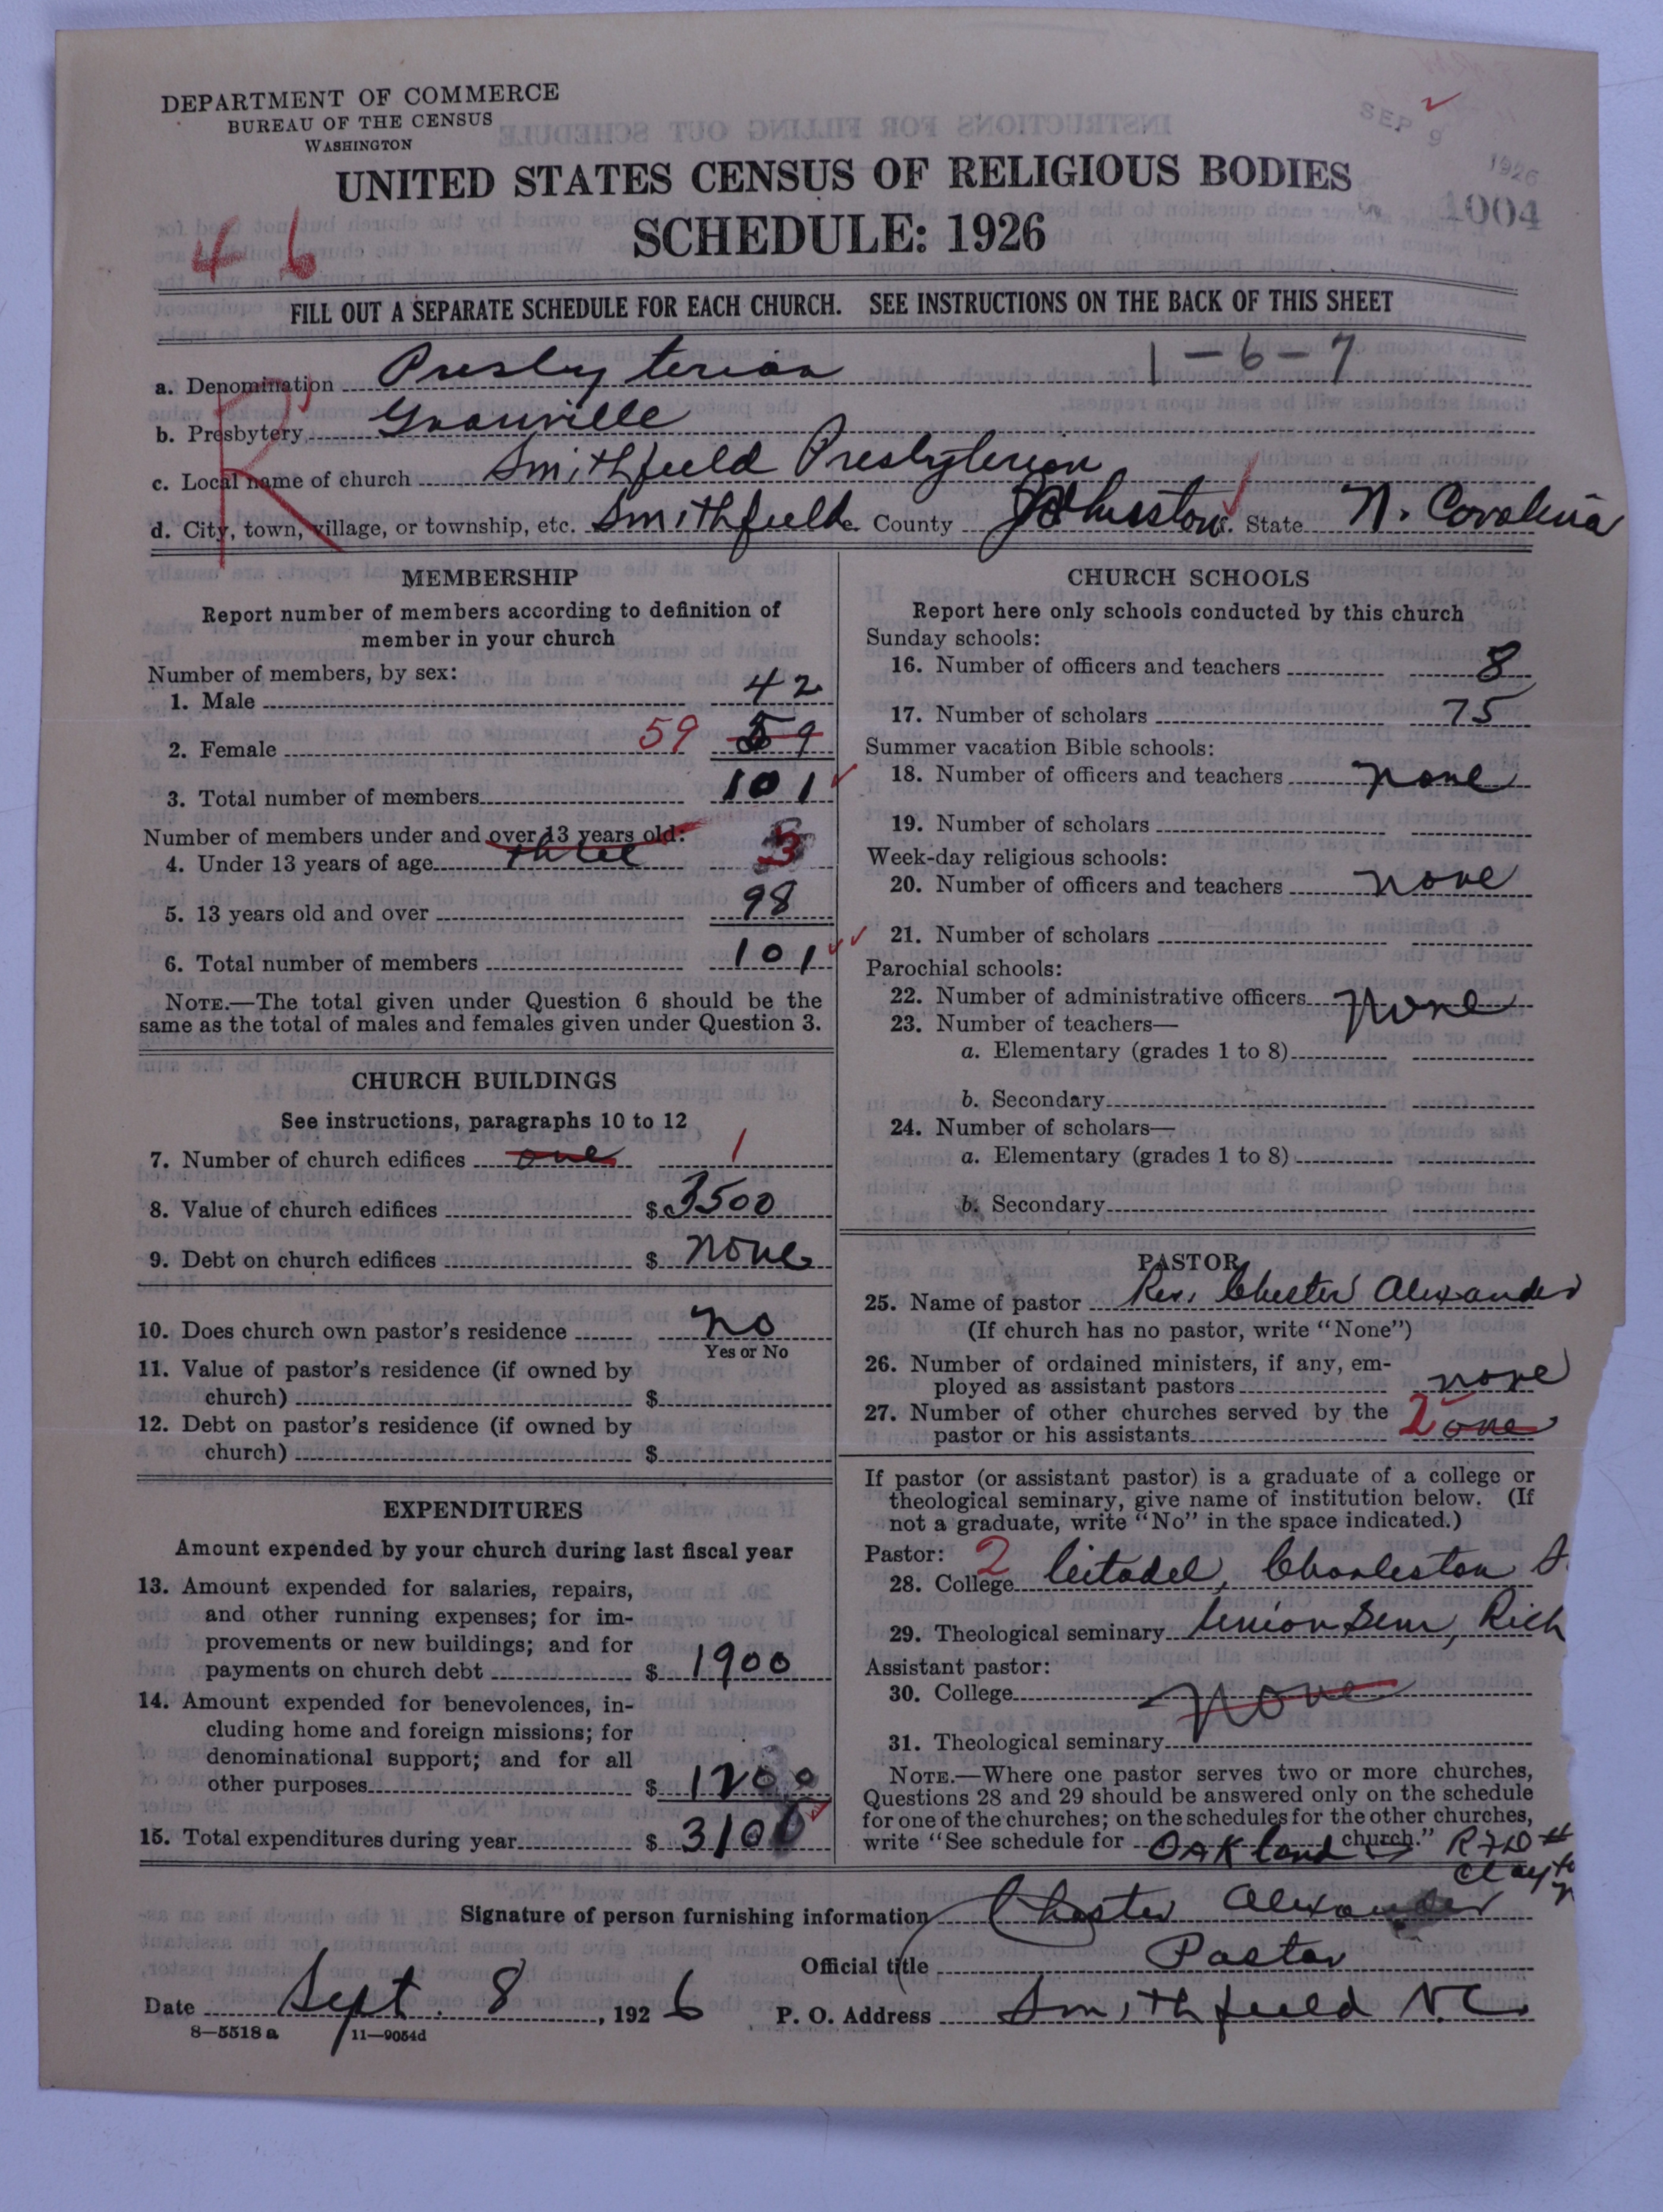 DEPARTMENT OF COMMERCE
BUREAU OF THE CENSUS
WASHINGTON
SEP 9 1926
1004
UNITED STATES CENSUS OF RELIGIOUS BODIES
SCHEDULE: 1926
46
FILL OUT A SEPARATE SCHEDULE FOR EACH CHURCH. SEE INSTRUCTIONS ON THE BACK OF THIS SHEET
R
a. Denomination Presbyterian 1-6-7
b. Presbytery Granville
c. Local name of church Smithfield Presbyterian
d. City, town, village, or township, etc. Smithfield County Johnston State N. Carolina
MEMBERSHIP
Report number of members according to definition of
member in your church
Number of members, by sex:
1. Male 42
2. Female 59 59
3. Total number of members 101
Number of members under and over 13 years old:
4. Under 13 years of age three 3
5. 13 years old and over 98
6. Total number of members 101
NOTE.—The total given under Question 6 should be the
same as the total of males and females given under Question 3.
CHURCH BUILDINGS
See instructions, paragraphs 10 to 12
7. Number of church edifices one 1
8. Value of church edifices $ 3500
9. Debt on church edifices $ none
10. Does church own pastor's residence no
Yes or No
11. Value of pastor's residence (if owned by
church) $
12. Debt on pastor's residence (if owned by
church) $
EXPENDITURES
Amount expended by your church during last fiscal year
13. Amount expended for salaries, repairs,
and other running expenses; for im-
provements or new buildings; and for
payments on church debt $ 1900
14. Amount expended for benevolences, in-
cluding home and foreign missions; for
denominational support; and for all
other purposes $ 1200
15. Total expenditures during year $ 3100
CHURCH SCHOOLS
Report here only schools conducted by this church
Sunday schools:
16. Number of officers and teachers 8
17. Number of scholars 75
Summer vacation Bible schools:
18. Number of officers and teachers none
19. Number of scholars
Week-day religious schools:
20. Number of officers and teachers none
21. Number of scholars
Parochial schools:
22. Number of administrative officers none
23. Number of teachers—
a. Elementary (grades 1 to 8)
b. Secondary
24. Number of scholars—
a. Elementary (grades 1 to 8)
b. Secondary
PASTOR
25. Name of pastor Rev. Chester Alexander
(If church has no pastor, write "None")
26. Number of ordained ministers, if any, em-
ployed as assistant pastors none
27. Number of other churches served by the
pastor or his assistants 2 one
If pastor (or assistant pastor) is a graduate of a college or
theological seminary, give name of institution below. (If
not a graduate, write "No" in the space indicated.)
Pastor: 2
28. College Citadel, Charleston S.
29. Theological seminary Union Sem, Rich
Assistant pastor:
30. College None
31. Theological seminary
NOTE.—Where one pastor serves two or more churches,
Questions 28 and 29 should be answered only on the schedule
for one of the churches; on the schedules for the other churches,
write "See schedule for Oakland church." RFD #
Clayto
Signature of person furnishing information Chester Alexander
Official title Pastor
Date Sept. 8, 1926 P. O. Address Smithfield N.C.
8—5518a 11—9054d